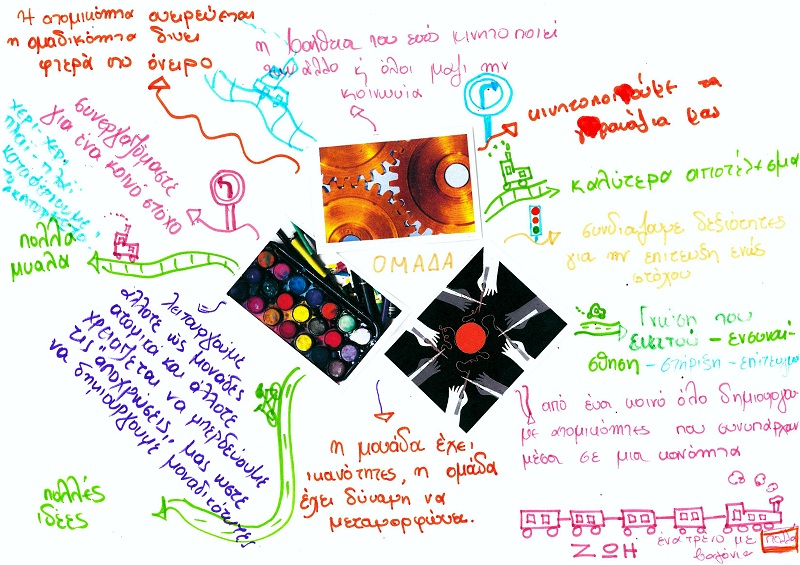 Η ατομικότητα ονειρεύεται
η ομαδικότητα δίνει
φτερά στο όνειρο
η βοήθεια του ενός κινητοποιεί
τον άλλο ή όλοι μαζί την
κοινωνία
κινητοποιούμε τα
μας
καλύτερα αποτέλεσμα
συνδυάζουμε δεξιότητες
για την επίτευξη ενός
στόχου
Γνώση του
εαυτού - ενσυναί-
σθηση - στήριξη - επίτευγμα
από ένα κοινό όλο δημιουργού
με ατομικότητες που συνυπάρχουν
μέσα σε μια κοινότητα
ΖΩΗ
ένα τρένο με πολλά
βαγόνια
συνεργαζόμαστε
για ένα κοινό στόχο
χέρι-χέρι
πλάι-πλάι
πολλά
μυαλά
ΟΜΑΔΑ
λειτουργούμε
άλλοτε ως μονάδες
ατομικά και άλλοτε
χρειάζεται να μπερδεύουμε
τις "αποχρώσεις" μας ώστε
να δημιουργούμε μοναδικότητες
η μονάδα έχει
ικανότητες, η ομάδα
έχει δύναμη να
μεταμορφώνει.
πολλές
ιδέες